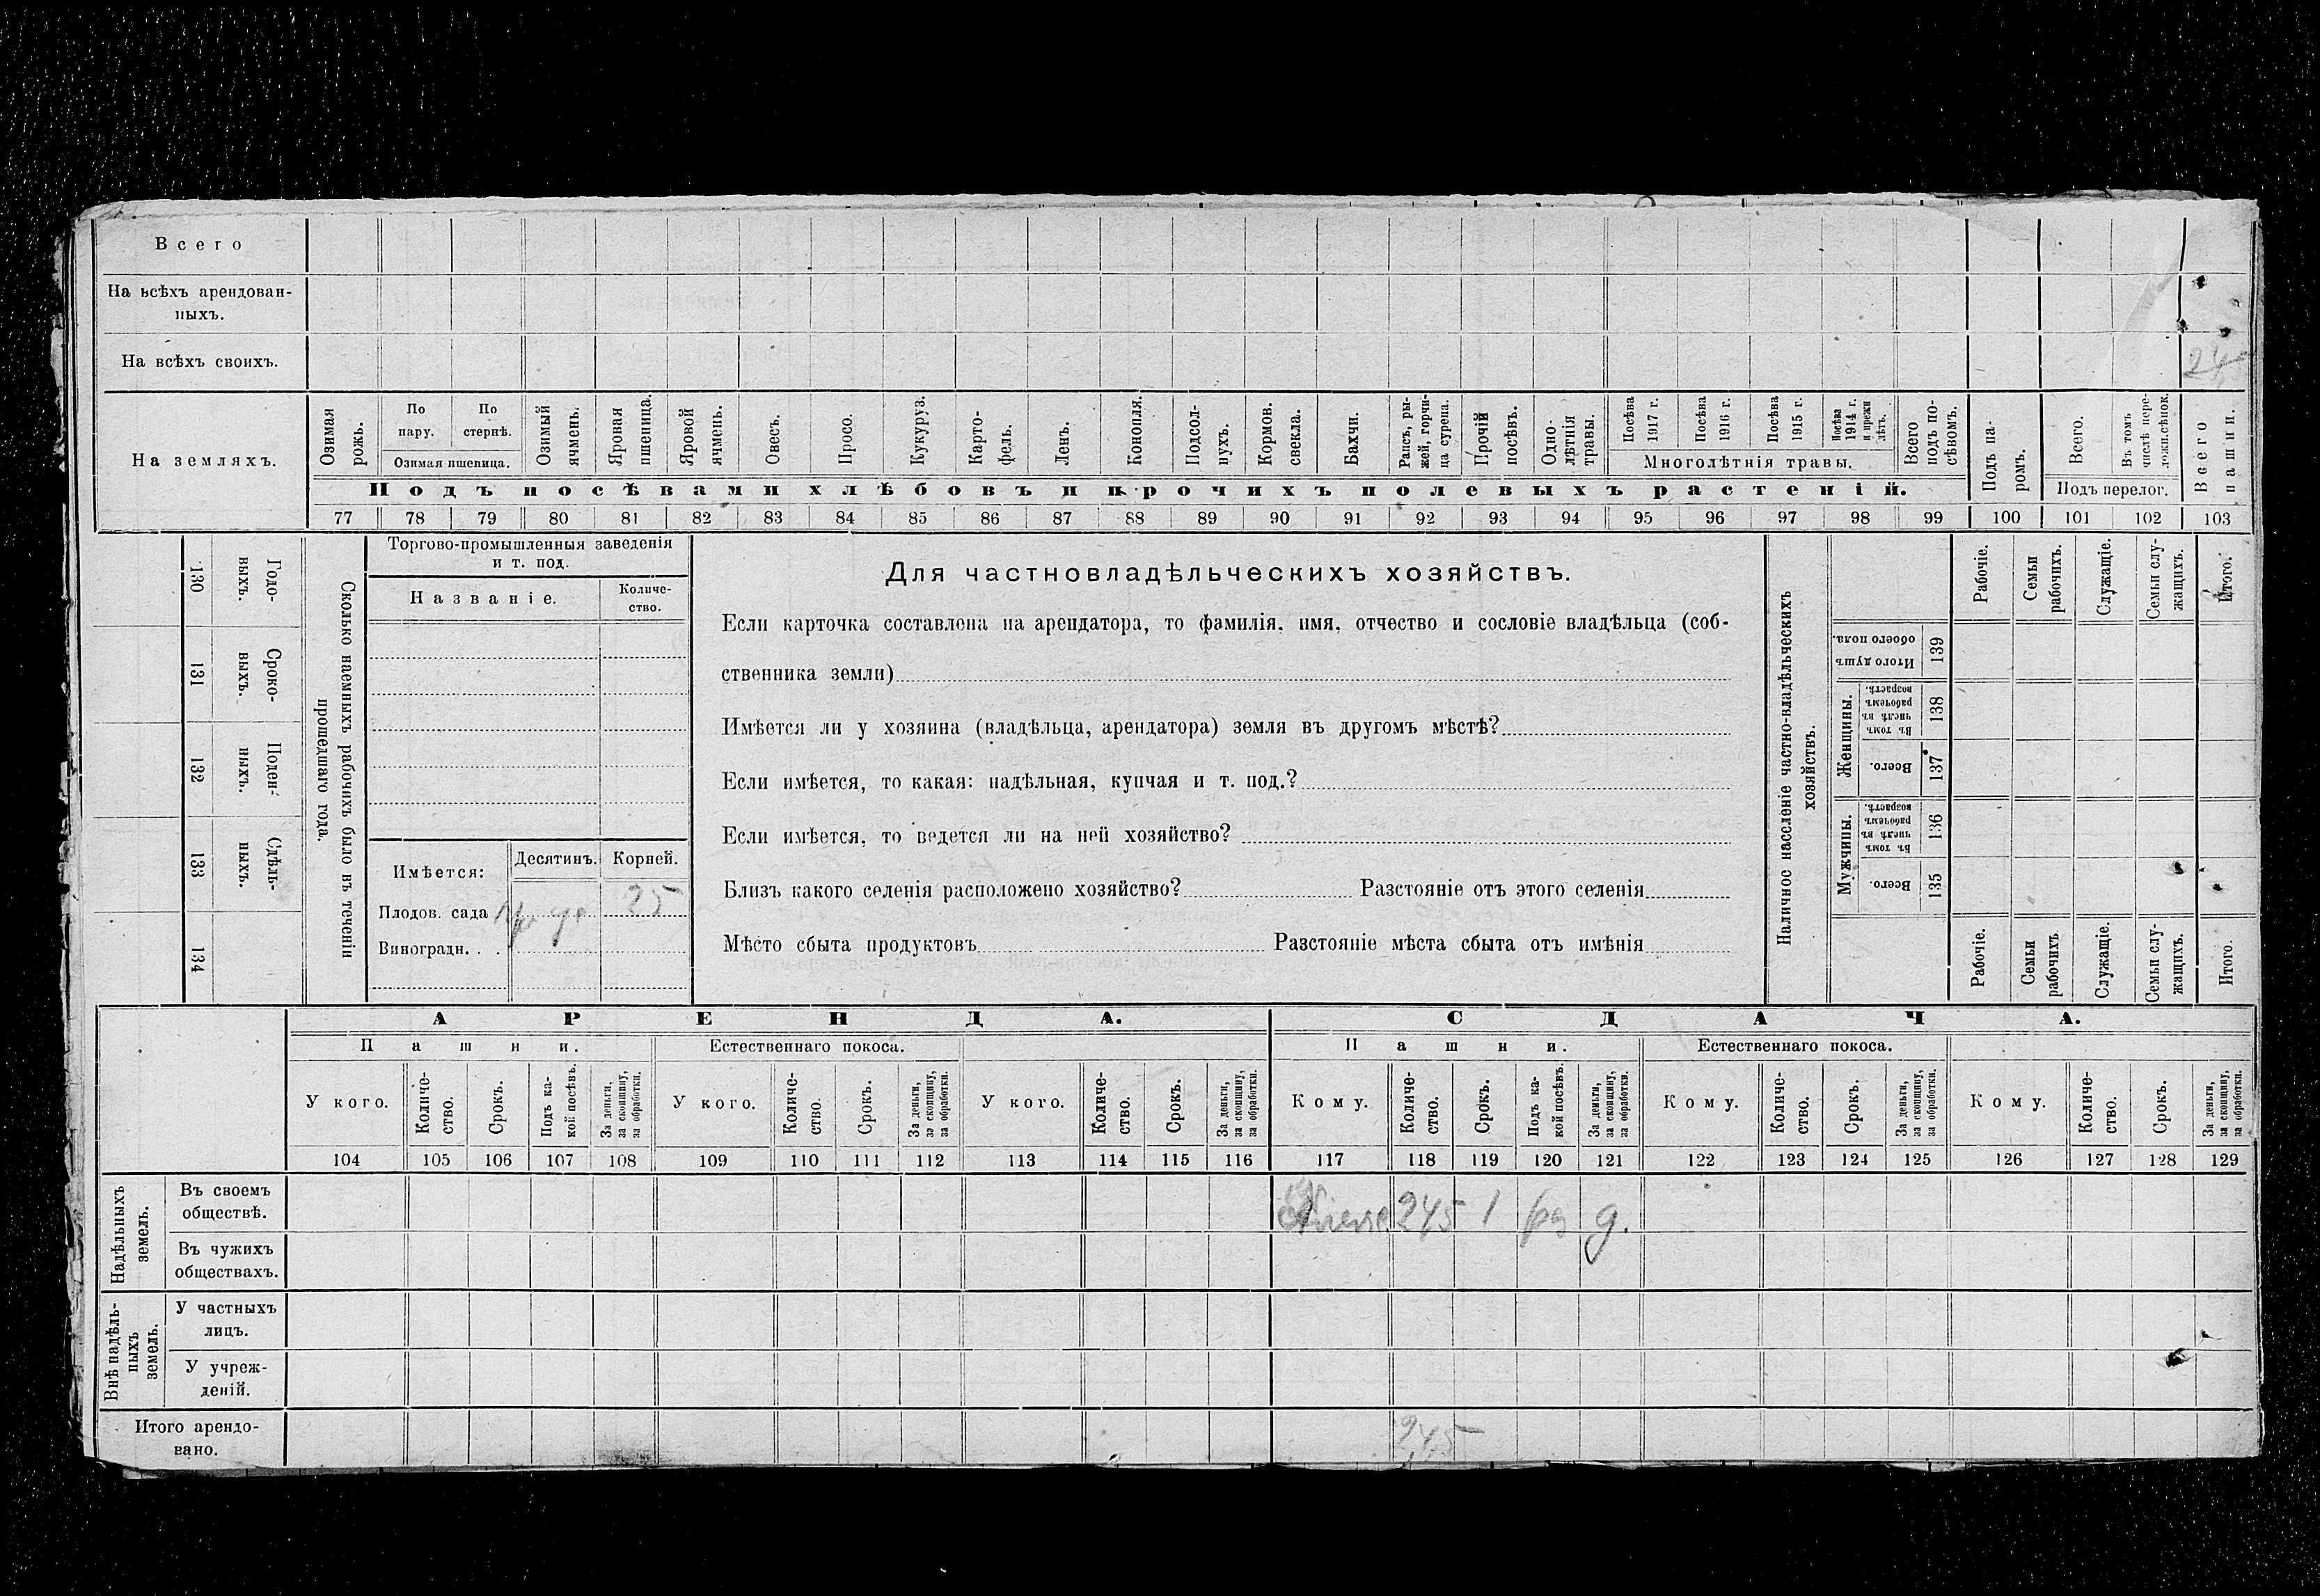 Всего
На всѣхъ арендован-
ныхъ.
На всѣхъ своихъ.
На земляхъ.
Озимая рожь.
По пару.
По стернѣ.
Озимая пшеница.
Озимый ячмень.
Яровая пшеница.
Яровой ячмень.
Овесъ.
Просо.
Кукуруз.
Карто-
фель.
Ленъ.
Конопля.
Подсол-
нухъ.
Кормов.
свекла.
Бахчи.
Рапсъ, ры-
жей, горчи-
ца сурепа.
Прочій
посѣвъ.
Одно-
лѣтнія
травы.
Посѣва
1917 г.
Посѣва
1916 г.
Посѣва
1915 г.
Посѣва
1914 г.
и прежн
лѣтъ.
Многолѣтнія травы.
Всего
подъ по-
сѣвомъ.
Подъ па-
ромъ.
Всего.
Въ томъ
числѣ пере-
ложн.сѣнок.
Подъ перелог.
Всего
пашни.
Подъ посѣвами хлѣбовъ и прочихъ полевыхъ растеній.
77 78 79 80 81 82 83 84 85 86 87 88 89 90 91 92 93 94 95 96 97 98 99 100 101 102 103
Сколько наемныхъ рабочихъ было въ теченіи
прошедшаго года.
Годо-
выхъ.
130
Сроко-
выхъ.
131
Поден-
ныхъ.
132
Сдѣль-
ныхъ.
133
134
Торгово-промышленныя заведенія
и т. под.
Названіе.
Количе-
ство.
Имѣется:
Десятинъ.
Корней.
Плодов. сада
25
Виноградн. . .
Для частновладѣльческихъ хозяйствъ.
Если карточка составлена на арендатора, то фамилія, имя, отчество и сословіе владѣльца (соб-
ственника земли)
Имѣется ли у хозяина (владѣльца, арендатора) земля въ другомъ мѣстѣ?
Если имѣется, то какая: надѣльная, купчая и т. под.?
Если имѣется, то ведется ли на ней хозяйство?
Близъ какого селенія расположено хозяйство? Разстояніе отъ этого селенія
Мѣсто сбыта продуктовъ Разстояніе мѣста сбыта отъ имѣнія
Наличное населеніе частно-владѣльческихъ
хозяйствъ.
Рабочіе.
Семьи
рабочихъ.
Служащіе.
Семьи слу-
жащихъ.
Итого.
Итого душъ
обоего пола.
139
Женщины.
Въ томъ
числѣ въ
рабочемъ
возрастѣ.
138
Всего.
137
Мужчины.
Въ томъ
числѣ въ
рабочемъ
возрастѣ.
136
Всего.
135
Рабочіе.
Семьи
рабочихъ
Служащіе.
Семьи слу-
жащихъ.
Итого.
АРЕНДА.
СДАЧА.
Пашни.
Естественнаго покоса.
Пашни.
Естественнаго покоса.
У кого.
Количе-
ство.
Срокъ.
Подъ ка-
кой посѣвъ.
За деньги,
за скопщину,
за обработки.
У кого.
Количе-
ство.
Срокъ.
За деньги,
за скопщину,
за обработки.
У кого.
Количе-
ство.
Срокъ.
За деньги,
за скопщину,
за обработки.
Кому.
Количе-
ство.
Срокъ.
Подъ ка-
кой посѣвъ.
За деньги,
за скопщину,
за обработки.
Кому.
Количе-
ство.
Срокъ.
За деньги,
за скопщину,
за обработки.
Кому.
Количе-
ство.
Срокъ.
За деньги,
за скопщину,
за обработки.
104 105 106 107 108 109 110 111 112 113 114 115 116 117 118 119 120 121 122 123 124 125 126 127 128 129
Надѣльныхъ
земель.
Въ своемъ
обществѣ.
245 1 д.
Въ чужихъ
обществахъ.
Внѣ надѣль-
ныхъ
земель.
У частныхъ
лицъ.
У учреж-
деній.
Итого арендо-
вано.
245